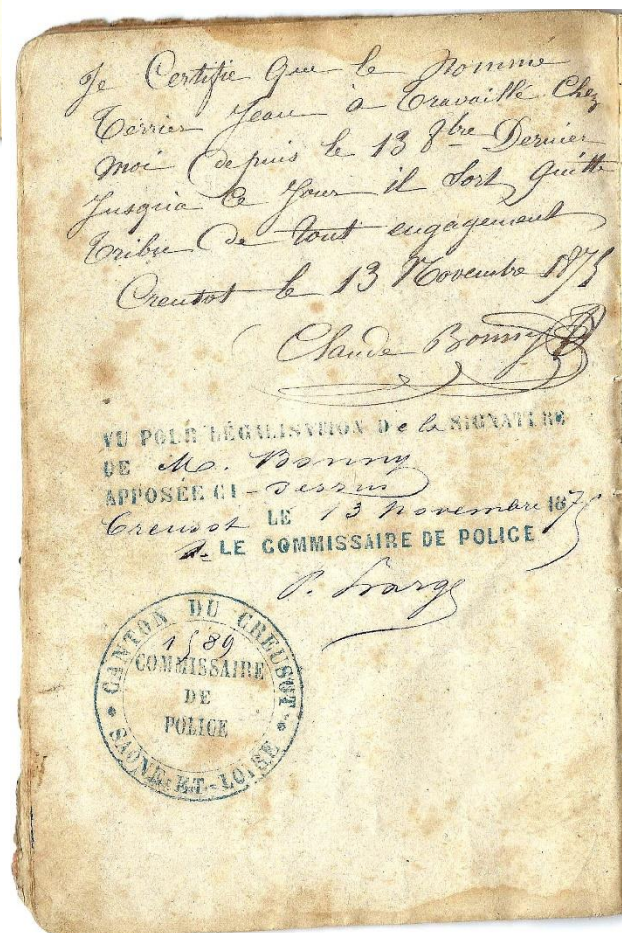 Je Certifie que le nommé
Terrier Jean à travaillé Chez
moi depuis le 13 8bre Dernier
Jusqu'a Ce Jour il Sort quitte
Libre de tout engagement
Creusot le 13 Novembre 1875
Claude Bonny
VU POUR LÉGALISATION De la SIGNATURE
DE M. Bonny
APPOSÉE CI-Dessus
Creusot LE 13 novembre 1875
LE COMMISSAIRE DE POLICE
CANTON DU CREUSOT
1589
COMMISSAIRE
DE
POLICE
SAÔNE-ET-LOIRE